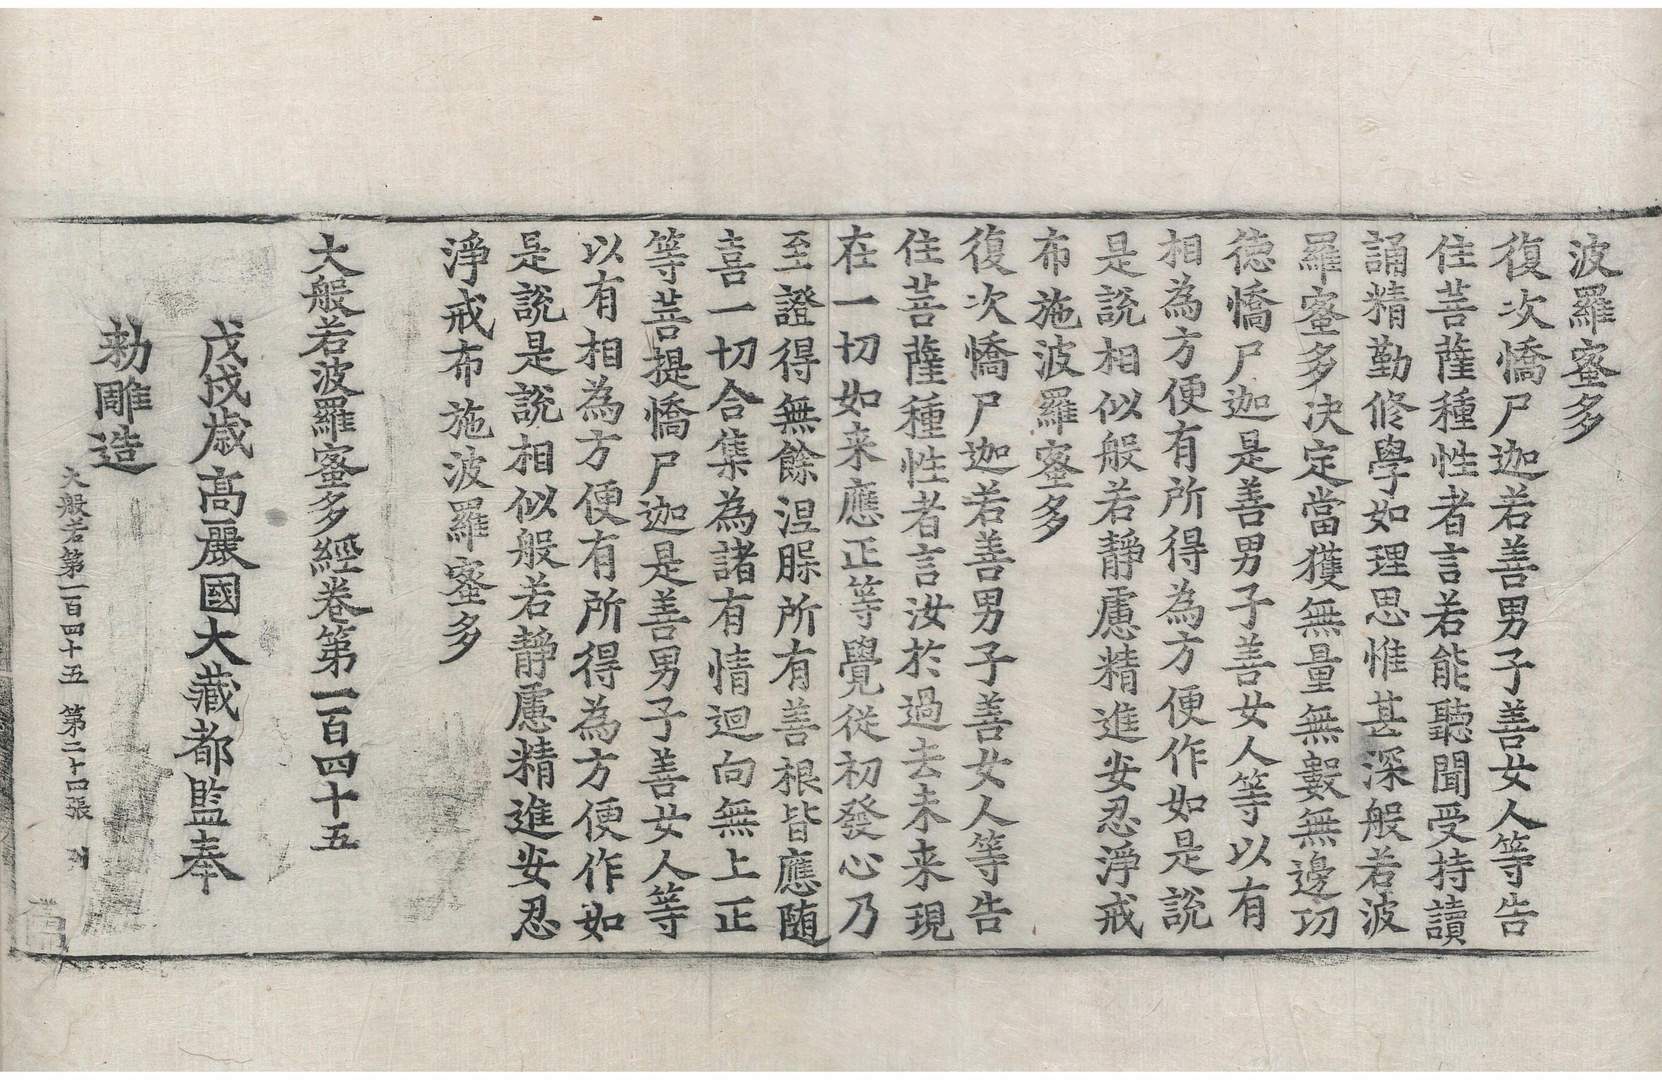 波羅蜜多
復次憍尸迦若善男子善女人等告
住菩薩種性者言若能聽聞受持讀
誦精勤修學如理思惟甚深般若波
羅蜜多决定當獲無量無數無邊功
德憍尸迦是善男子善女人等以有
相為方便有所得為方便作如是說
是說相似般若靜慮精進安忍淨戒
布施波羅蜜多
復次憍尸迦若善男子善女人等告
住菩薩種性者言汝於過去未来現
在一切如来應正等覺從初發心乃
至證得無餘涅槃所有善根皆應随
喜一切合集為諸有情迴向無上正
等菩提憍尸迦是善男子善女人等
以有相為方便有所得為方便作如
是說是說相似般若靜慮精進安忍
淨戒布施波羅蜜多
大般若波羅蜜多經卷第一百四十五
戊戌歲高麗國大藏都監奉
勑雕造
大般若第一百四十五 第二十四張